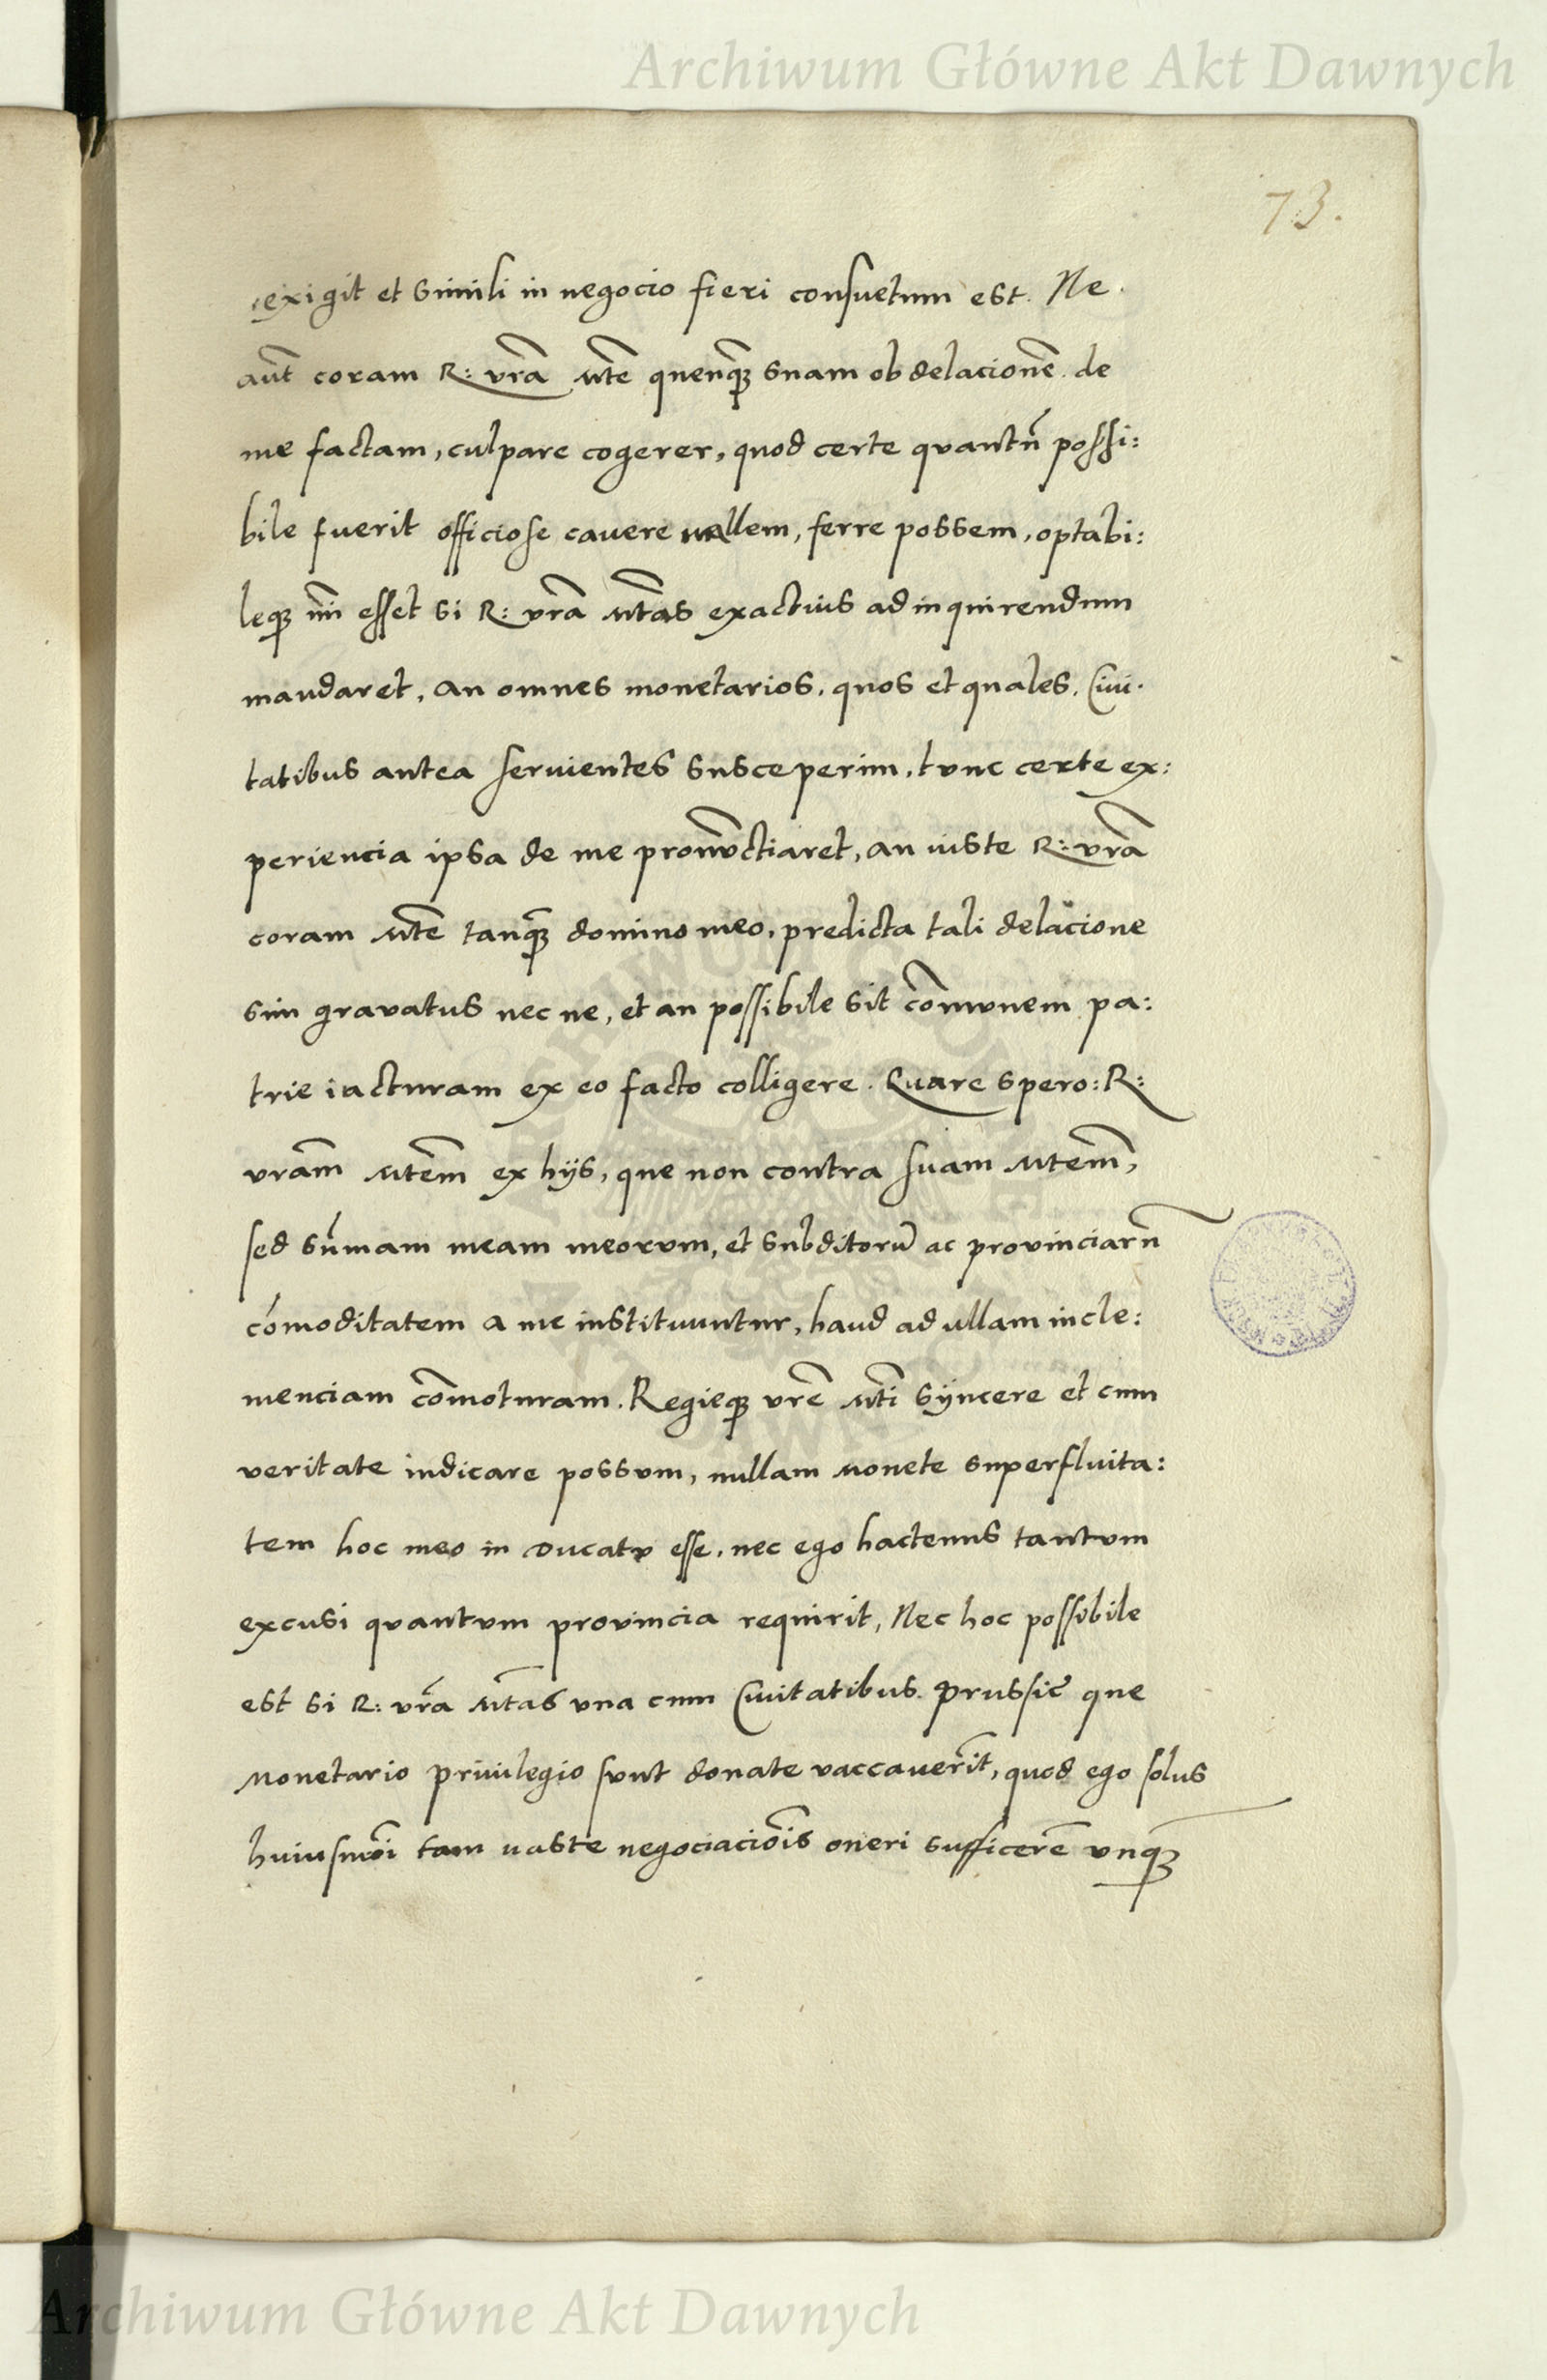 Archiwum Główne Akt Dawnych
73.
exigit et simili in negocio fieri consuetum est. Ne
aūt coram R: vrā Mte quenq̄ȝ suam ob delacionē de
me factam, culpare cogerer, quod certe quantū possi:
bile fuerit officiose cavere vellem, ferre possem, optabi:
leqȝ mī esset si R: vrā Mtas exactius ad inquirendum
mandaret, an omnes monetarios, quos et quales, Civi-
tatibus antea servientes susceperim, tunc certe ex:
periencia ipsa de me pronūctiaret, an iuste R: vrā
coram Mte tanq̄ȝ domino meo, predicta tali delacione
sim gravatus nec ne, et an possibile sit cōmunem pa:
trie iacturam ex eo facto colligere. Quare spero: R:
vrām Mtem ex hijs, que non contra suam Mtem,
sed sūmam meam meorum, et subditorū ac provinciarū
cōmoditatem a me instituuntur, haud ad ullam incle:
menciam cōmoturam. Regieqȝ vrē Mti sÿncere et cum
veritate indicare possum, nullam monete superfluita:
tem hoc meo in Ducatu esse, nec ego hactenus tantum
excusi quantum provincia requirit, Nec hoc possibile
est si R: vrā Mtas una cum Civitatibus Prussie que
monetario privilegio sunt donate vaccaverīt, quod ego solus
huiusmōi tam vaste negociacōis oneri sufficerē unq̄ȝ
Archiwum Główne Akt Dawnych